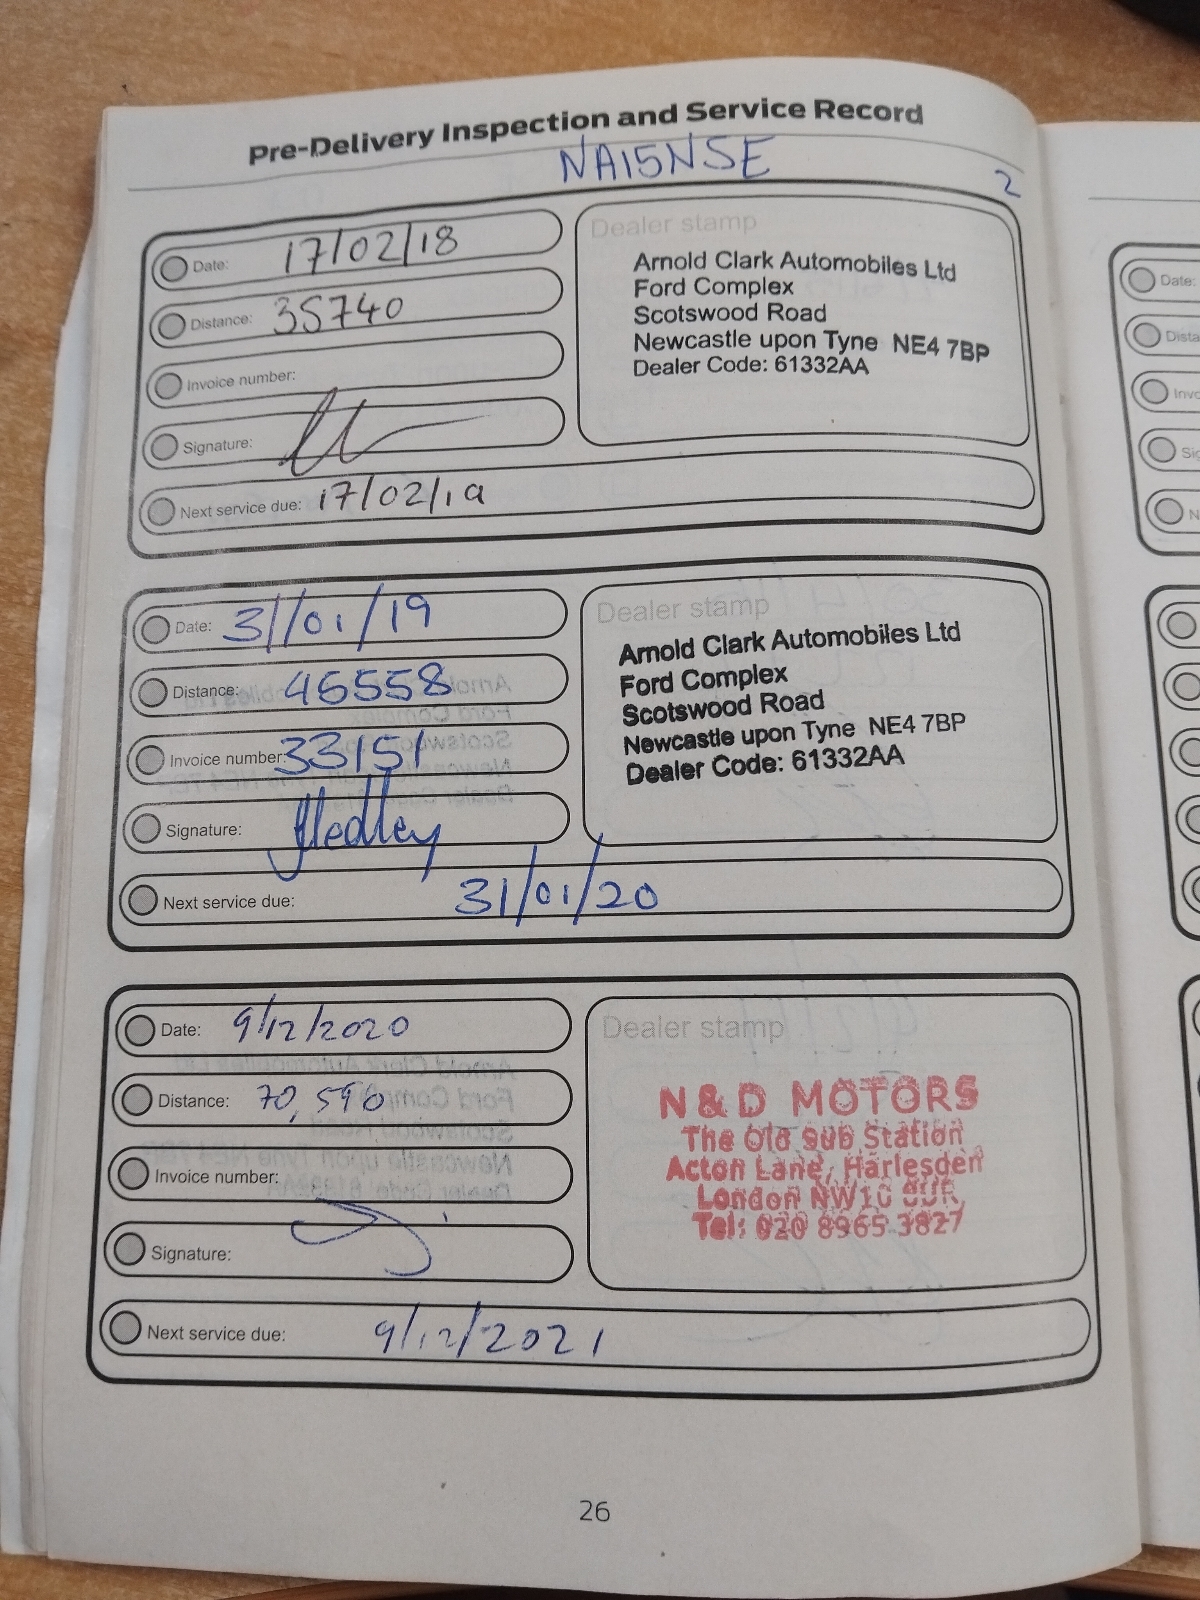 Pre-Delivery Inspection and Service Record
NA15NSE
2
Date: 17/02/18
Distance: 35740
Invoice number:
Signature:
Next service due: 17/02/19
Dealer stamp
Arnold Clark Automobiles Ltd
Ford Complex
Scotswood Road
Newcastle upon Tyne NE4 7BP
Dealer Code: 61332AA
Date: 31/01/19
Distance: 46558
Invoice number: 33151
Signature: Hedley
Next service due: 31/01/20
Dealer stamp
Arnold Clark Automobiles Ltd
Ford Complex
Scotswood Road
Newcastle upon Tyne NE4 7BP
Dealer Code: 61332AA
Date: 9/12/2020
Distance: 70,590
Invoice number:
Signature:
Next service due: 9/12/2021
Dealer stamp
N & D MOTORS
The Old Sub Station
Acton Lane, Harlesden
London NW10
Tel: 020 8965 3827
26
Date: